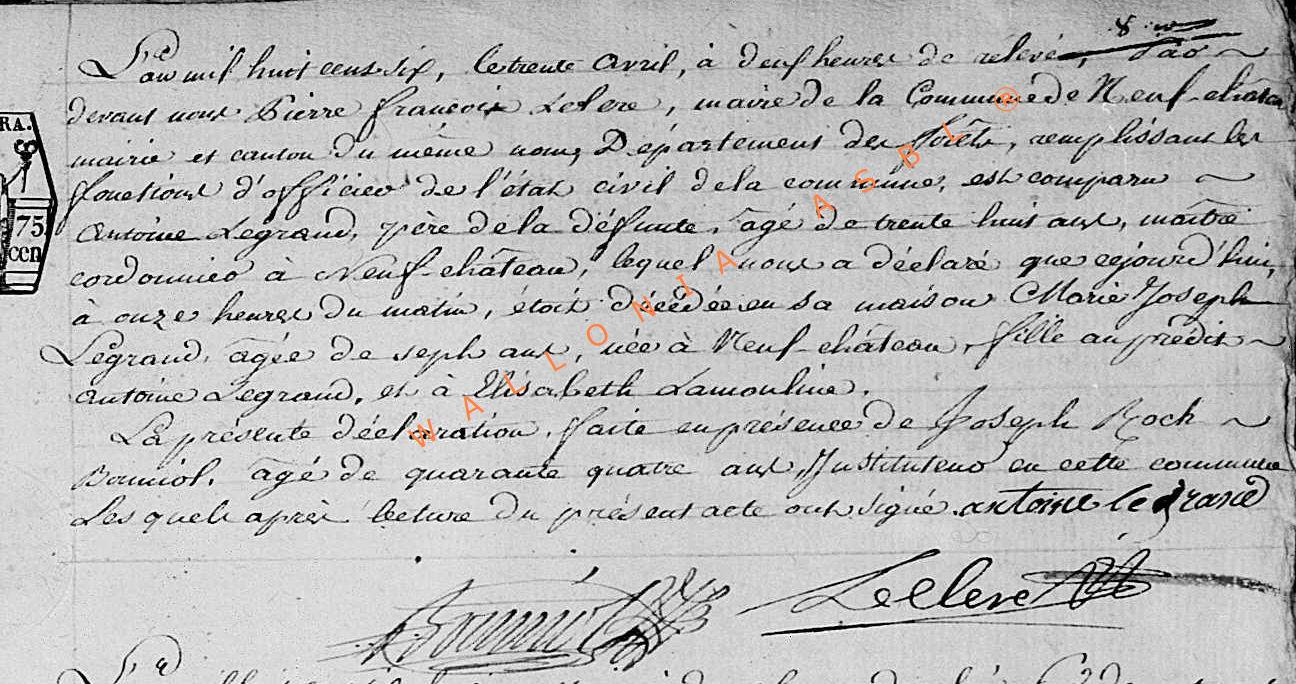 L'an mil huit cens six, le trente avril, à deux heures de relevé, Par
devant nous Pierre françois Leclerc, maire de la Commune de Neuf-château
mairie et canton du même nom, Département des forêts, remplissant les
fonctions d'officier de l'état civil de la commune, est comparu
antoine Legrand, père de la défunte, âgé de trente huit ans, maître
cordonnier à Neuf-château, lequel nous a déclaré que cejourd'hui,
à onze heures du matin, étoit décédée en sa maison Marie Joseph
Legrand, âgée de sept ans, née à Neuf-château, fille au prédit
antoine Legrand, et à Elisabeth Lamouline.
La présente déclaration, faite en présence de Joseph Roch
âgé de quarante quatre ans, Instituteur en cette commune
Lesquels après lecture du présent acte ont signé. antoine legrand
Leclerc
RA.
75
cen
WALLONIA ASBL ®